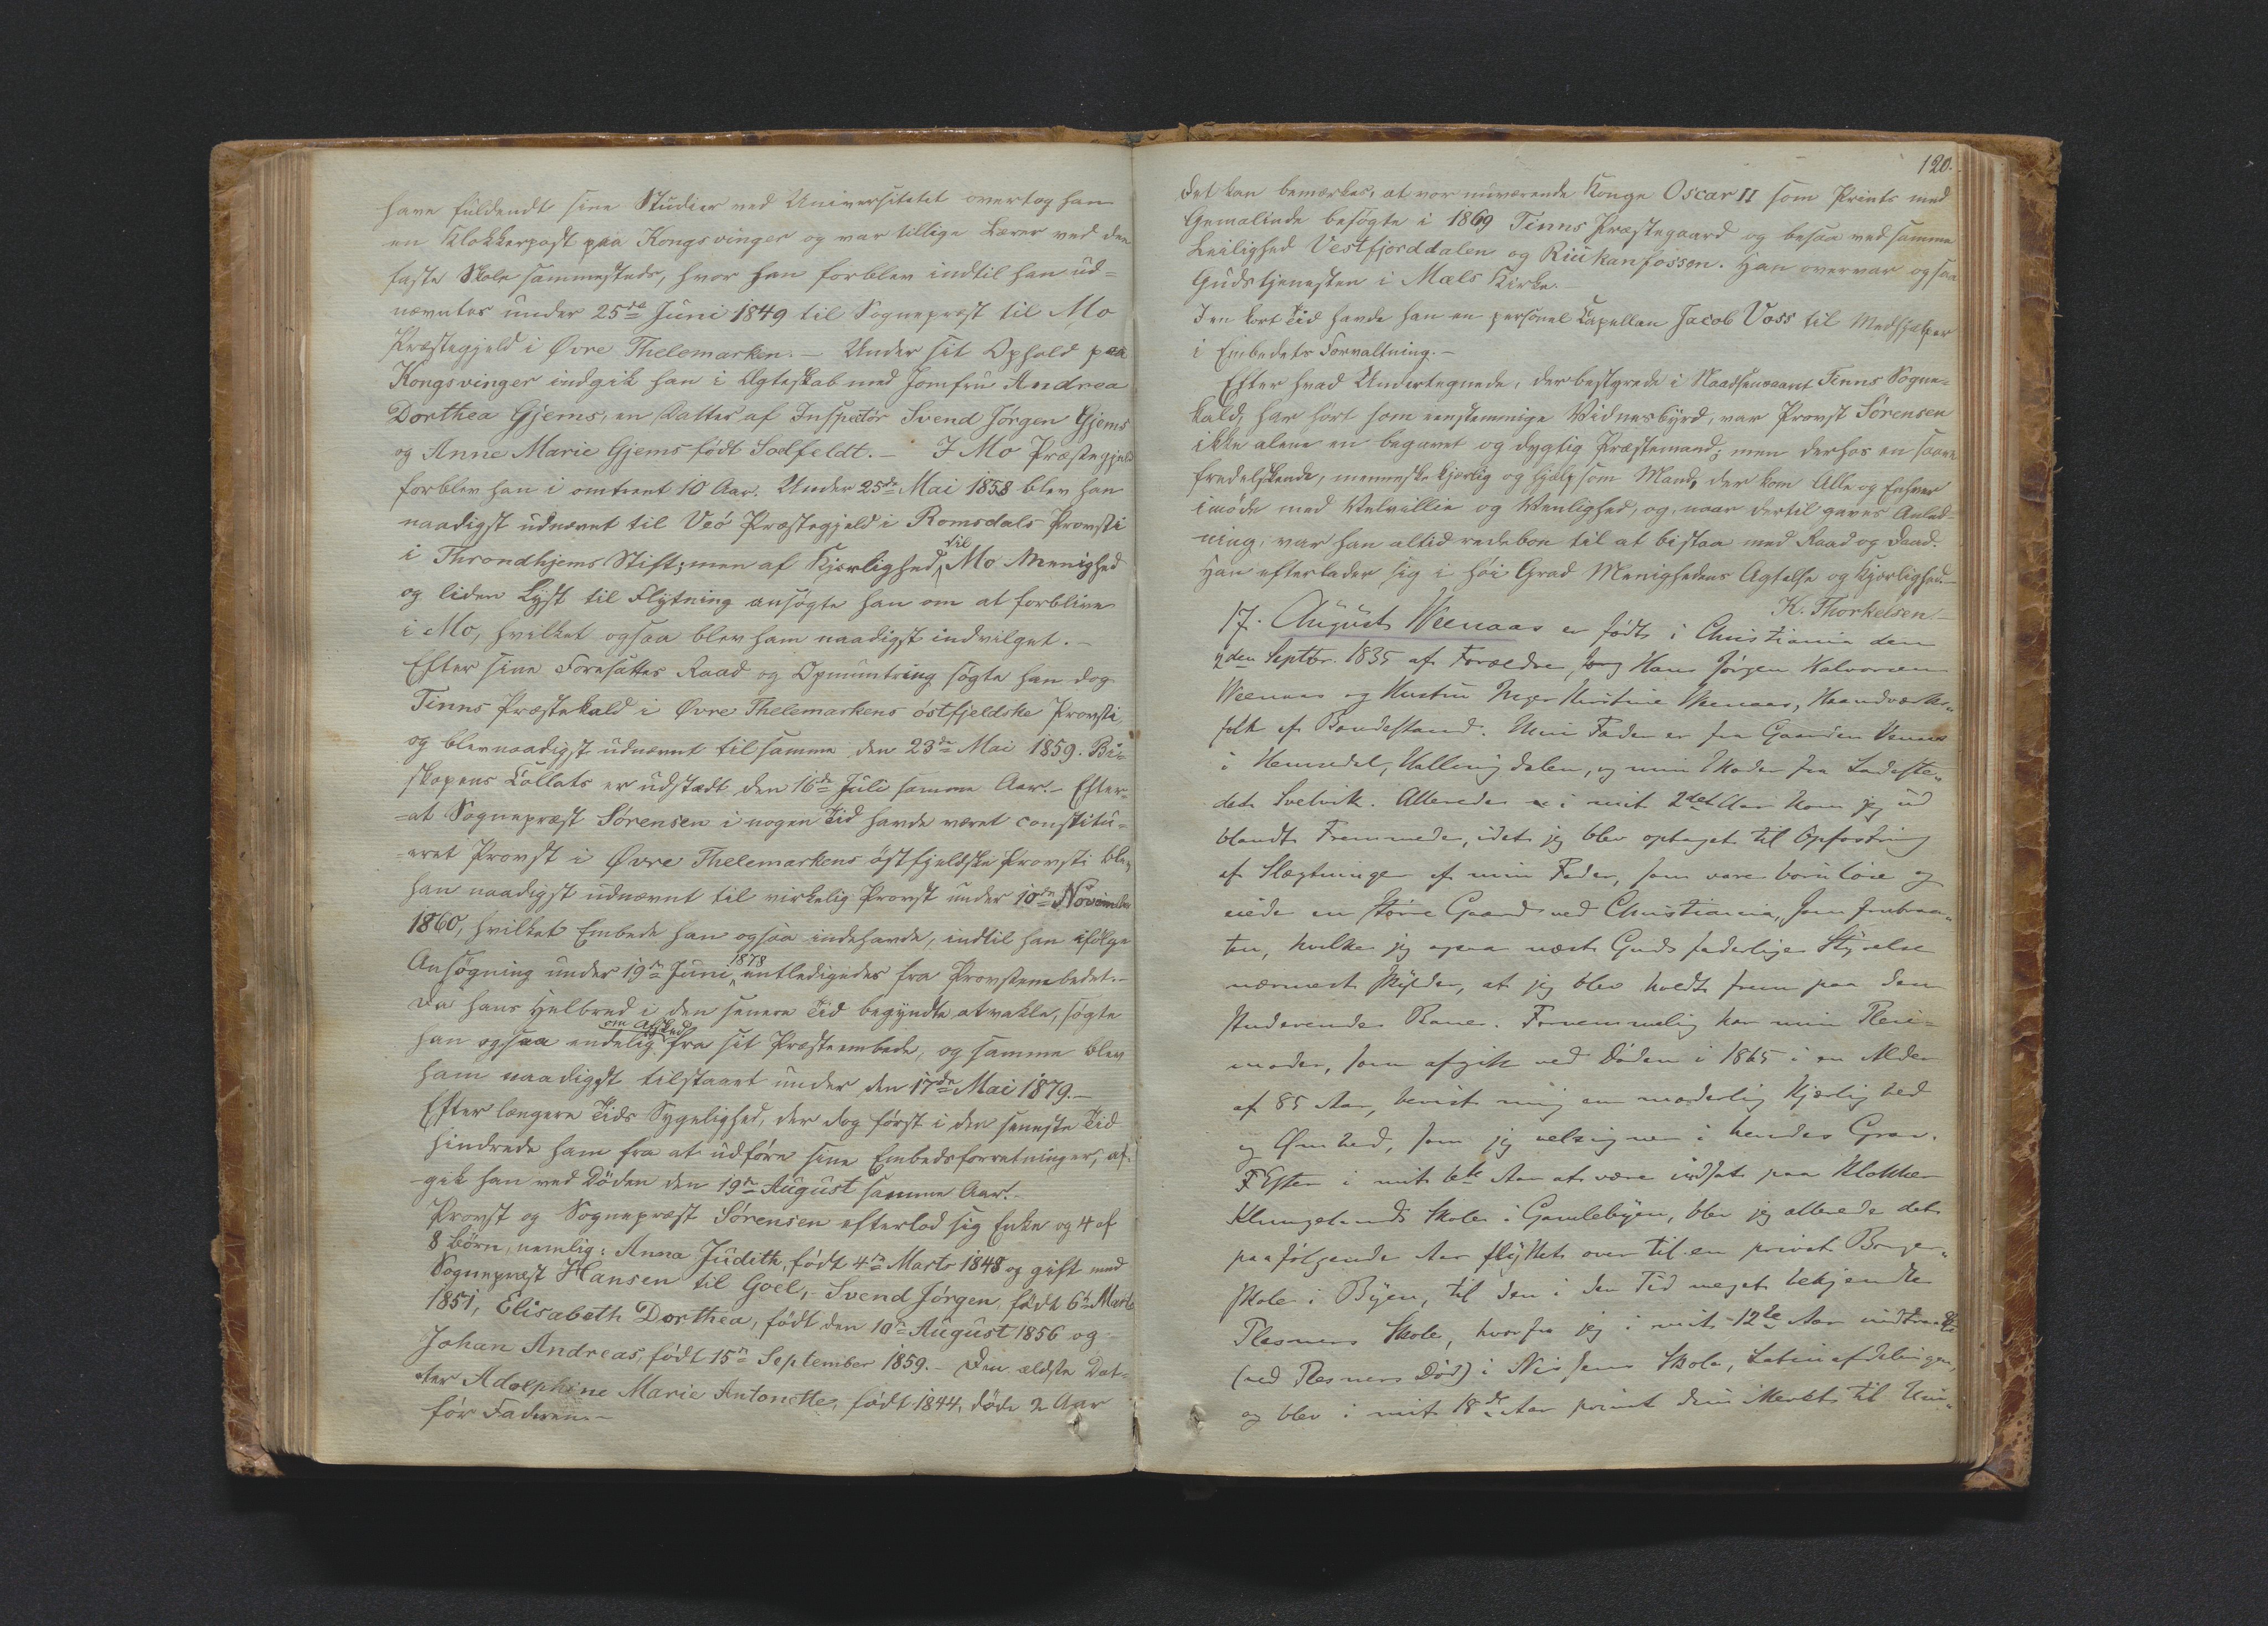 have fuldendt sine Studier ved Universitetet overtog han
en Klokkerpost paa Kongsvinger og var tillige Lærer ved den
faste Skole sammesteds, hvor han forblev indtil han ud-
nævntes under 25de Juni 1849 til Sognepræst til Mo
Præstegjeld i Øvre Thelemarken. – Under sit Ophold paa
Kongsvinger indgik han i Ægteskab med Jomfru Andrea
Dorthea Gjems, en Datter af Inspectør Svend Jörgen Gjems
og Anne Marie Gjems födt Sodfeldt. – I Mo Præstegjeld
forblev han i omtrent 10 Aar. Under 25de Mai 1858 blev han
naadigst udnævnt til Veö Præstegjeld i Romsdals Provsti
i Throndhjems Stift; men af Kjærlighed til Mo Menighed
og liden Lyst til Flytning ansögte han om at forblive
i Mo, hvilket ogsaa blev ham naadigst indvilget. –
Efter sine Foresattes Raad og Opmuntring sögte han dog
Tinns Præstekald i Øvre Thelemarkens östfjeldske Provsti,
og blev naadigst udnævnt til samme den 23de Mai 1859. Bi-
skopens Collats er udstædt den 16de Juli samme Aar. – Efter-
-at Sognepræst Sörensen i nogen Tid havde været constitu-
-eret Provst i Øvre Thelemarkens östfjeldske Provsti blev
han naadigst udnævnt til virkelig Provst under 10de November
1860, hvilket Embede han ogsaa indehavde, indtil han ifölge
Ansögning under 19de Juni 1878 entledigedes fra Provstembedet. –
Da hans Helbred i den senere Tid begyndte at vakle, sögte
han ogsaa endelig om Afsked fra sit Præsteembede, og samme blev
ham naadigst tilstaaet under den 17de Mai 1879. –
Efter længere Tids Sygelighed, der dog först i den seneste Tid
hindrede ham fra at udföre sine Embedsforretninger, af-
-gik han ved Döden den 19de August samme Aar. –
Provst og Sognepræst Sörensen efterlod sig Enke og 4 af
8 Börn, nemlig: Anna Judith, födt 4de Marts 1848 og gift med
Sognepræst Hansen til Goel, – Svend Jörgen, födt 6te Marts
1851, Elisabeth Dorthea, födt den 10de August 1856 og
Johan Andreas, födt 15de September 1859. – Den ældste Dat-
-ter Adolphine Marie Antonette, födt 1844, döde 2 Aar
för Faderen. –
120.
Det kan bemærkes, at vor nuværende Konge Oscar II som Prints med
Gemalinde besögte i 1869 Tinns Præstegaard og besaa ved samme
Leilighed Vestfjorddalen og Riukanfossen. Han overvar ogsaa
Gudstjenesten i Mæls Kirke. –
I en kort Tid havde han en personel Capellan Jacob Voss til Medhjælper
i Embedets Forvaltning. –
Efter hvad Undertegnede, der bestyrede i Naadsensaaret Tinns Sogne-
kald, har hört som eenstemmige Vidnesbyrd, var Provst Sörensen
ikke alene en begavet og dygtig Præstemand; men derhos en saare
fredelskende, menneskekjærlig og hjælpsom Mand, der kom Alle og Enhver
imöde med Velvillie og Venlighed, og, naar dertil gaves Anled-
ning, var han altid redebon til at bistaa med Raad og Daad.
Han efterlader sig i höi Grad Menighedens Agtelse og Kjærlighed. –
K. Thorkelsen
17. August Weenaas er födt i Christiania den
2den Septbr. 1835 af Forældre, Hans Jörgen Halvorsen
Weenaas og Hustru Inger Kirstine Weenaas, Haandværks-
folk af Bondestand. Min Fader er fra Gaarden Venaas
i Hemsedal, Hallingdalen, og min Moder fra Ladeste-
det Svelvik. Allerede i mit 2det Aar kom jeg ud
blandt Fremmede, idet jeg blev optaget til Opfostring
af Slægtninge af min Fader, som vare barnlöse og
eiede en större Gaard ved Christiania,
hvilke jeg ogsaa næst Guds faderlige Styrelse
nærmest skylder, at jeg blev holdt frem paa den
studerende Bane. Fornemmelig har min Pleie-
moder, som afgik ved Döden i 1865 i en Alder
af 85 Aar, beviist mig en moderlig Kjærlighed
og Ömhed, som jeg velsigner i hendes Grav.
Efter i mit 6te Aar at være indsat paa Klokker
Klungelands Skole i Gamlebyen, blev jeg allerede det
paafölgende Aar flyttet over til en privat Borger-
skole i Byen, til den i den Tid meget bekjendte
Plesners Skole, hvorfra jeg i mit 12te Aar indtraadte
(ved Plesners Död) i Nissens Skole, Latinafdelingen,
og blev i mit 18de Aar privat dimitteret til Uni-